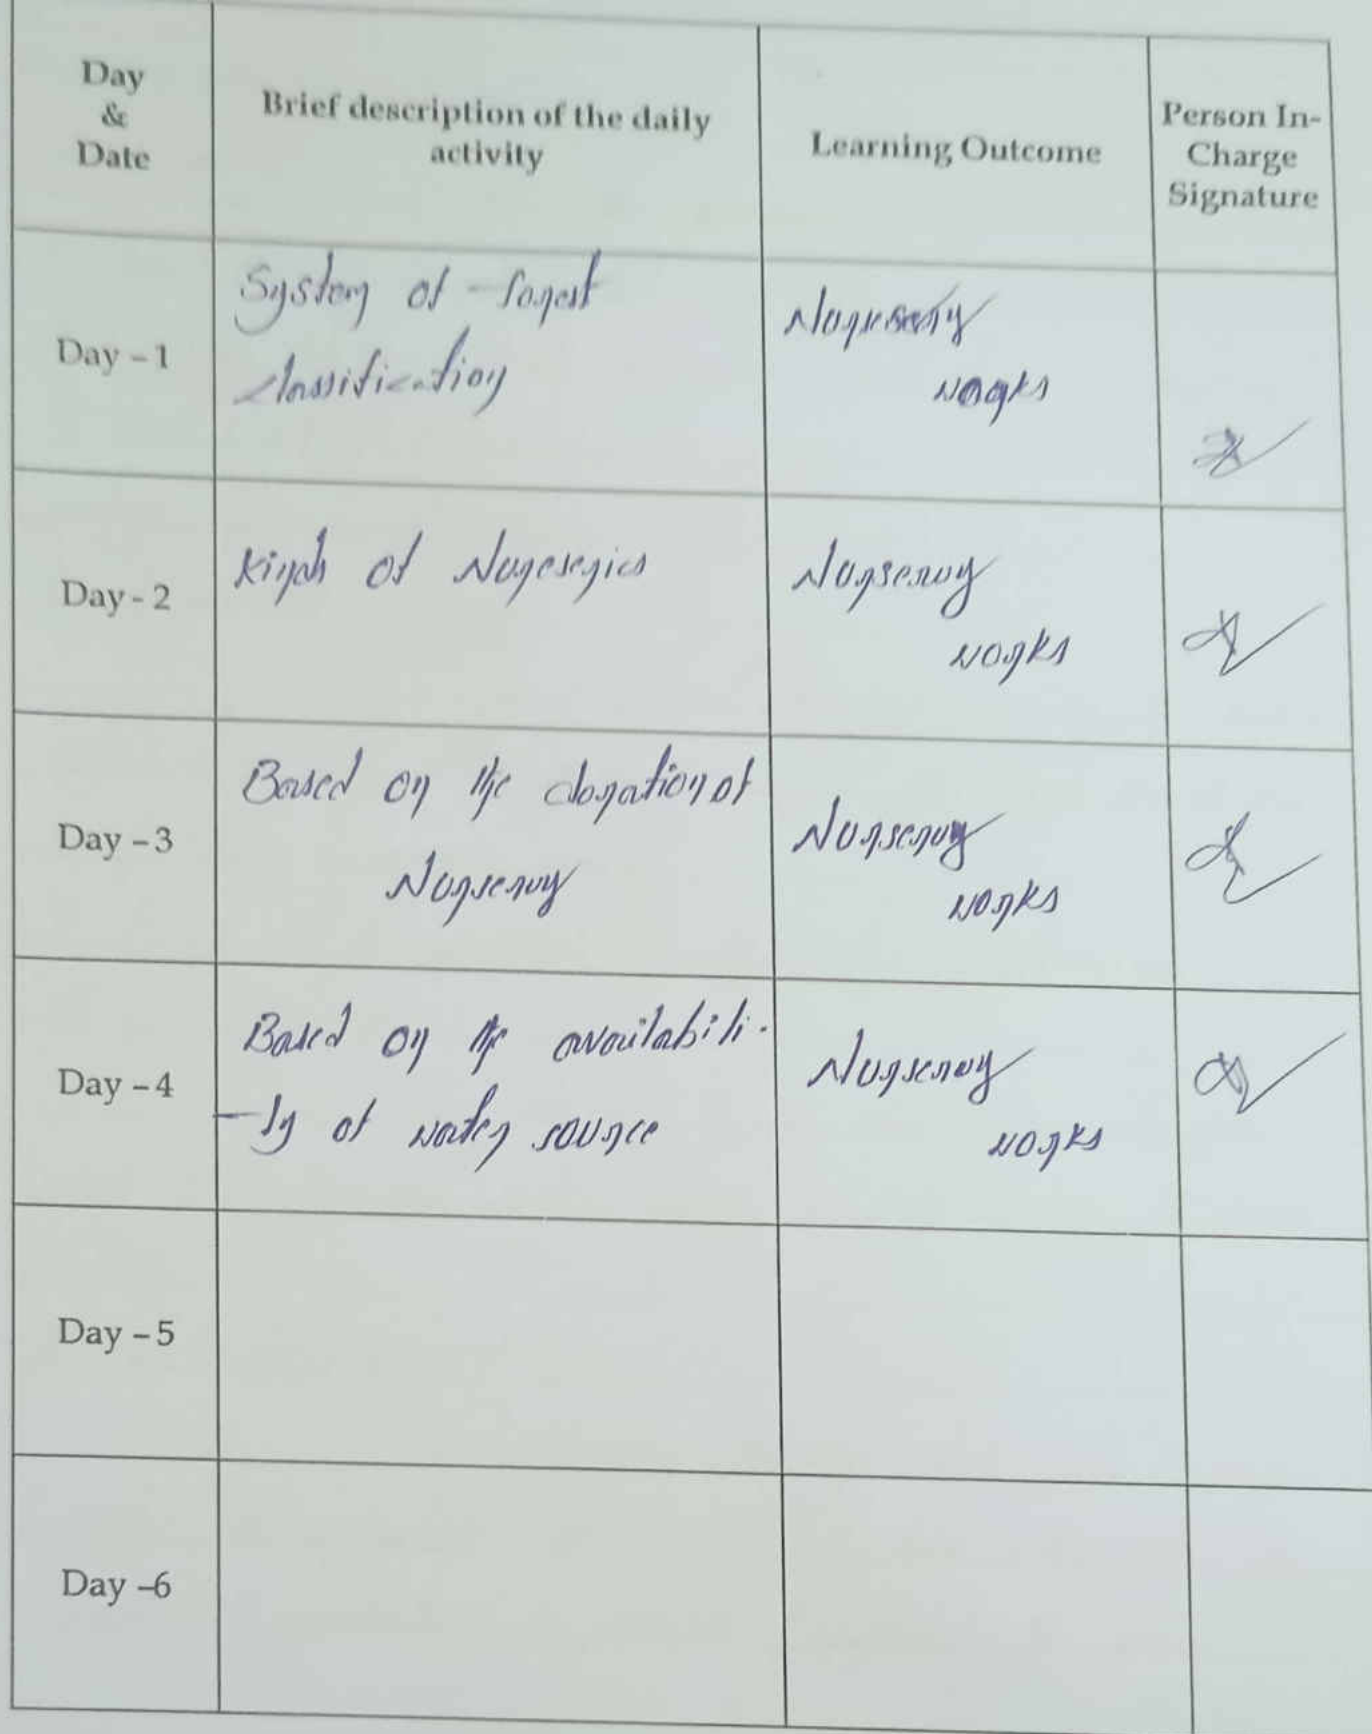 Day
&
Date
Brief description of the daily
activity
Learning Outcome
Person In-
Charge
Signature
Day - 1
System of forest
classification
Nursery
works
Day - 2
Kinds of Nurseries
Nursery
works
Day - 3
Based on the duration of
Nursery
Nursery
works
Day - 4
Based on the availabili-
-ty of water source
Nursery
works
Day - 5
Day -6